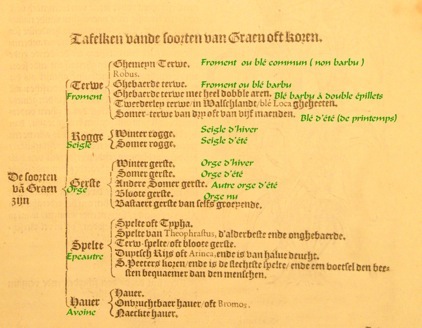 Tafelken vande soorten van Graen oft koren.
Ghemeyn Terwe. Froment ou blé commun ( non barbu )
Robus.
Terwe Ghebaerde terwe. Froment ou blé barbu
Froment Ghebaerde terwe met heel dobble aren. Blé barbu à double épillets
Tweederley terwe/in Walschlandt/blé Loca gheheeten.
Somer-terwe van dry oft van vijf maenden. Blé d'été (de printemps)
Rogge Winter rogge. Seigle d'hiver
Seigle Somer rogge. Seigle d'été
De soorten vā Graen zijn
Winter gerste. Orge d'hiver
Somer gerste. Orge d'été
Gerste Andere Somer gerste. Autre orge d'été
Orge Bloote gerste. Orge nu
Bastaert gerste van selfs groeyende.
Spelte oft Typha.
Spelte van Theophrastus, d'alderbeste ende onghebaerde.
Spelte Terw-spelte/oft bloote gerste.
Epeautre Duytsch Rijs oft Arinca, ende is van halve deucht.
S. Peeters koren/ende is de slechtste spelte/ende een voetsel den bee-
sten bequamer dan den menschen.
Hauer Hauer.
Avoine Onvruchtbaer hauer/oft Bromos.
Naeckte hauer.